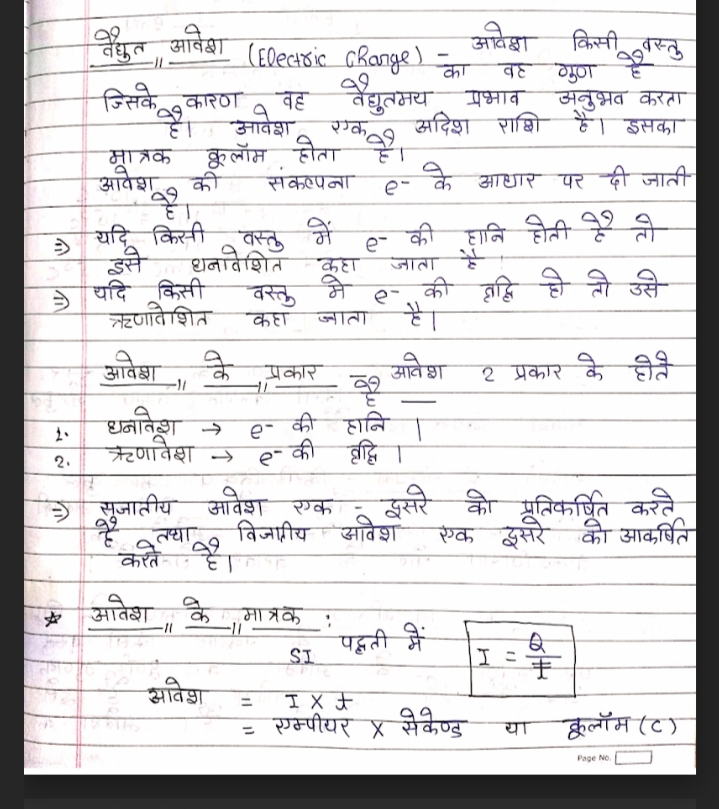 वैद्युत आवेश (Electric Charge) - आवेश किसी वस्तु
का वह गुण है
जिसके कारण वह वैद्युतमय प्रभाव अनुभव करता
है। आवेश एक अदिश राशि है। इसका
मात्रक कूलॉम होता है।
आवेश की संकल्पना e- के आधार पर दी जाती
है।
⇒ यदि किसी वस्तु में e- की हानि होती है तो
इसे धनावेशित कहा जाता है।
⇒ यदि किसी वस्तु मे e- की वृद्धि हो तो उसे
ऋणावेशित कहा जाता है।
आवेश के प्रकार - आवेश 2 प्रकार के होते
है —
1. धनावेश → e- की हानि ।
2. ऋणावेश → e- की वृद्धि ।
⇒ सजातीय आवेश एक - दूसरे को प्रतिकर्षित करते
है तथा विजातीय आवेश एक दूसरे को आकर्षित
करते है।
* आवेश के मात्रक :
SI पद्धती में I = Q/t
आवेश = I × t
= एम्पीयर × सेकेण्ड या कूलॉम (C)
Page No.